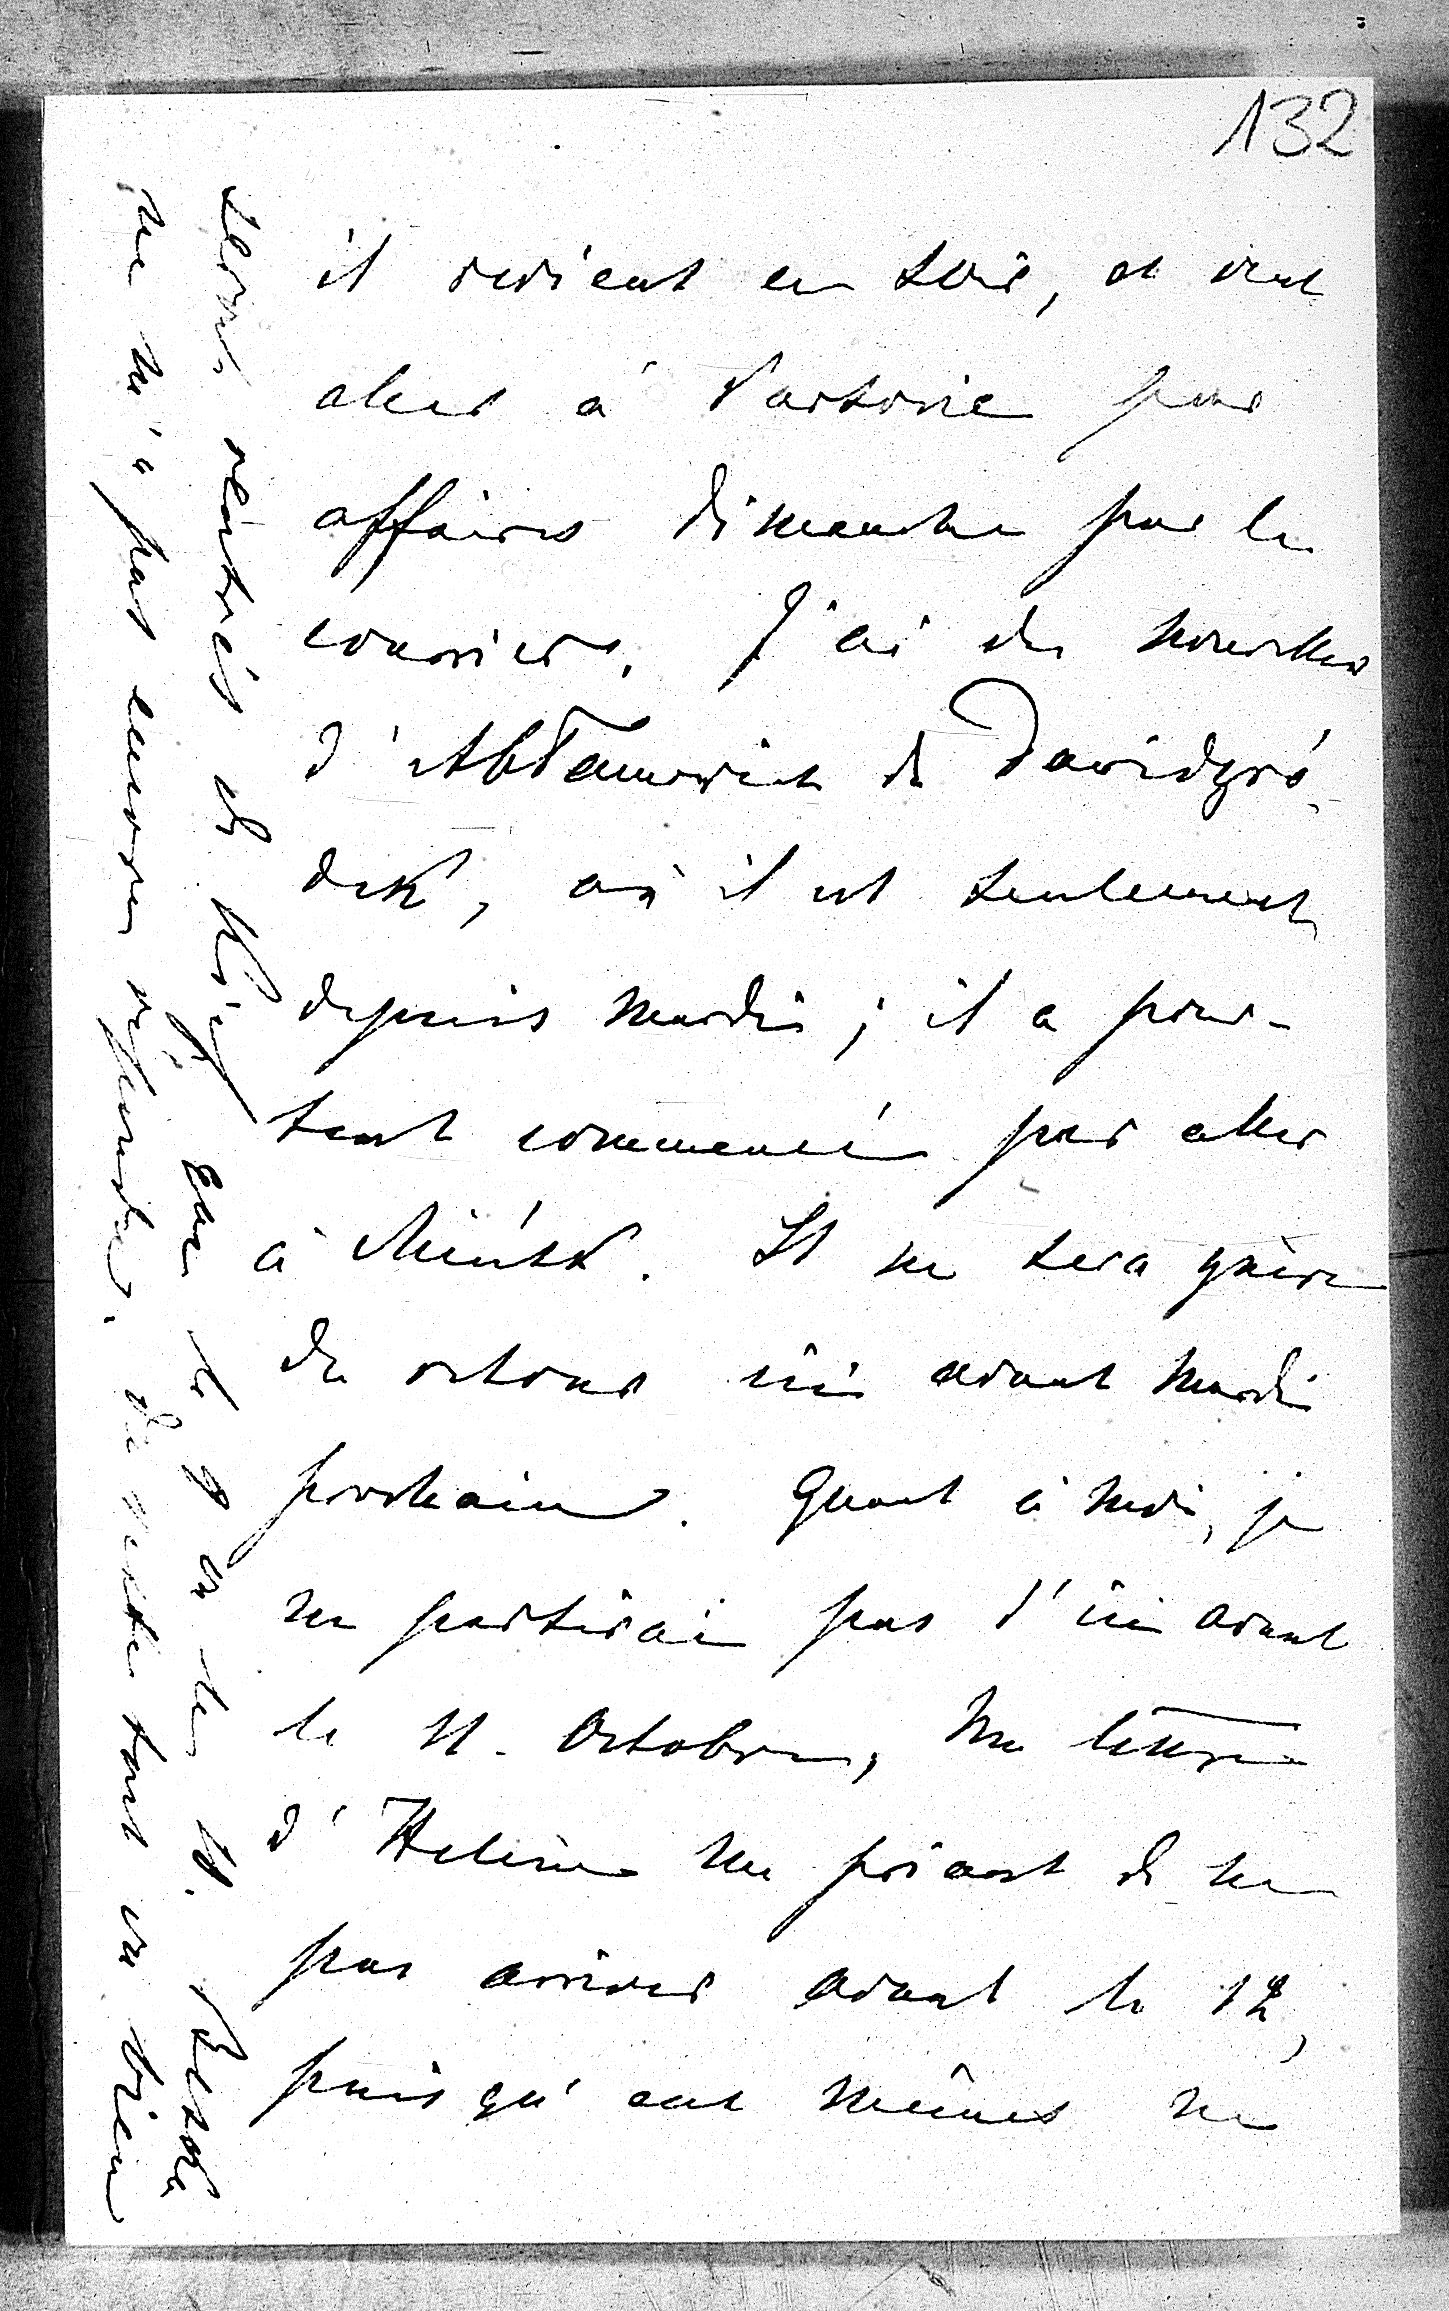 132
il revient ce soir, et veut
aller à Varsovie pour
affaires dimanche par le
courrier. J'ai des nouvelles
d'Abłamowicz de Dawidgró-
dek, où il est seulement
depuis mardi ; il a pour-
tant commencé par aller
à Mińsk. Il ne sera guère
de retour ici avant mardi
prochain. Quant à moi, je
ne partirai pas d'ici avant
le 11. Octobre, une lettre
d'Hélène me priant de ne
pas arriver avant le 12,
puisqu'eux mêmes ne
seront rentrés de Kieff que le 9 ou le 10.
ne m'a pas encore répondu. Je reste tout un bien